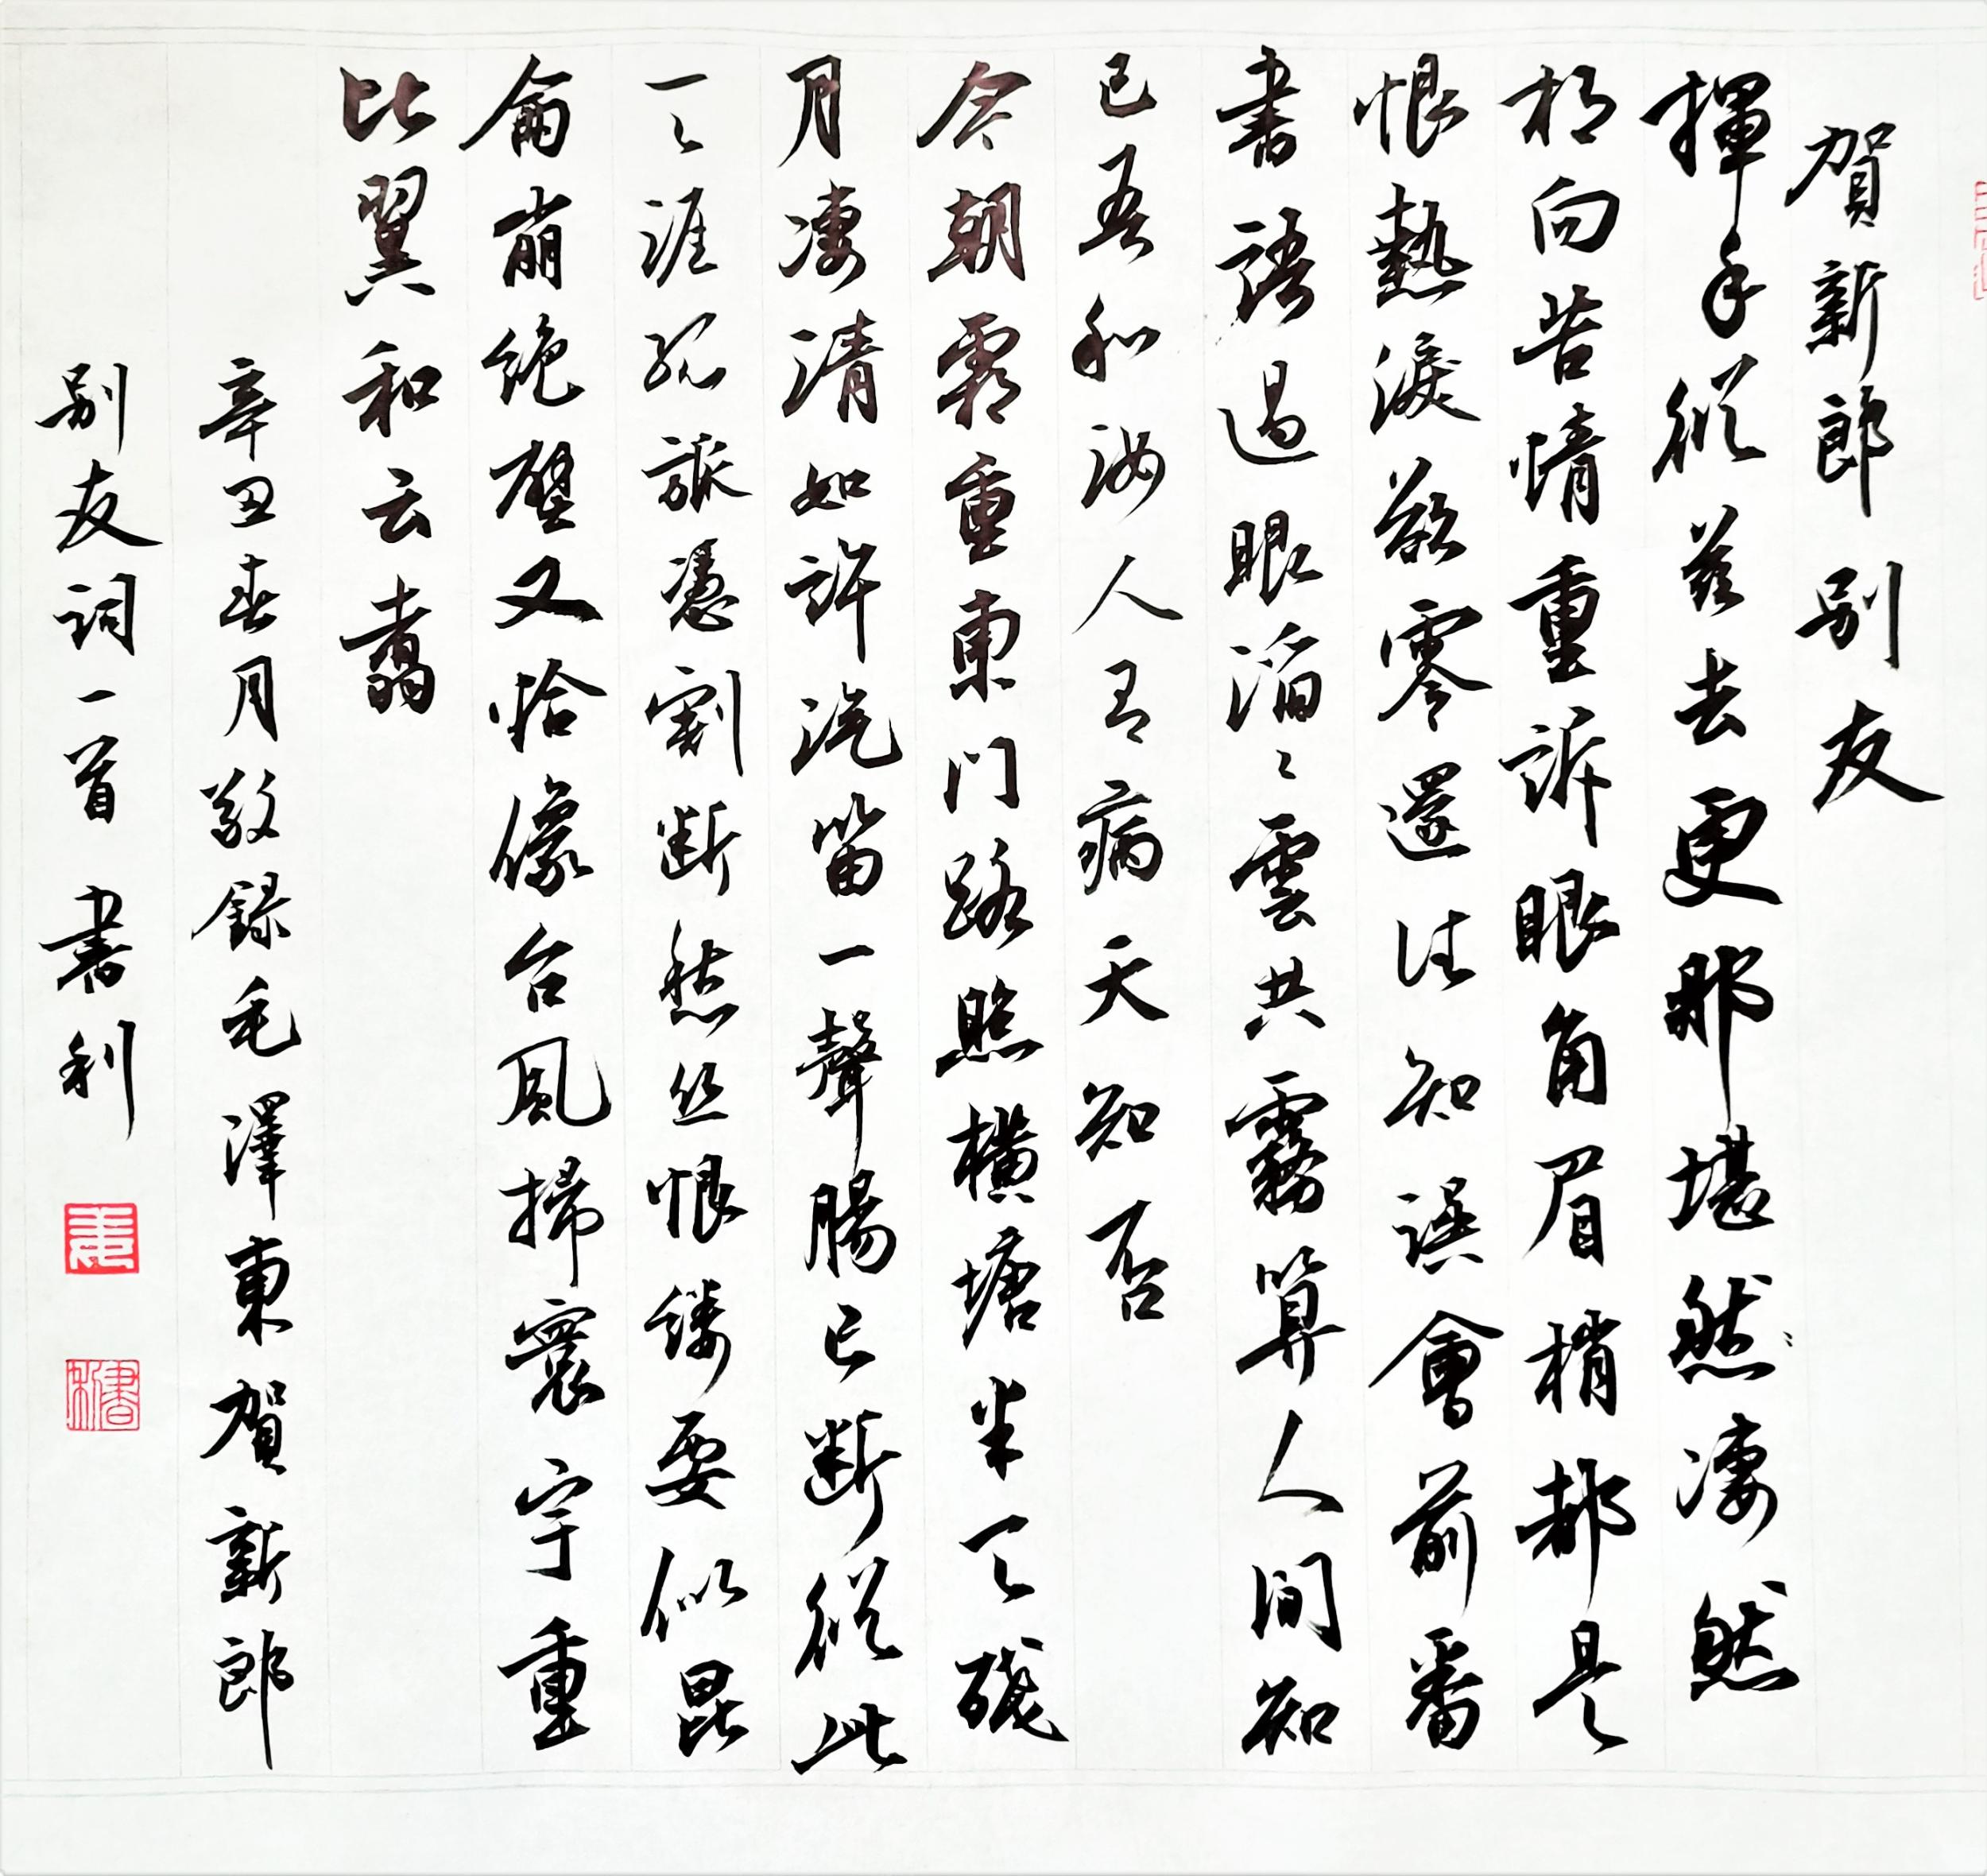 賀新郎 別友
揮手從茲去更那堪然凄然
相向苦情重訴眼角眉梢都是
恨熱淚欲零還住知誤會前番
書語過眼滔〻雲共霧算人間知
己吾和汝人有病天知否
今朝霜重東門路照橫塘半天殘
月凄清如許汽笛一聲腸已斷從此
天涯孤旅憑割斷愁絲恨縷要似昆
侖崩絕壁又恰像台風掃寰宇重
比翼和云翥
辛丑春月敬録毛澤東賀新郎
別友詞一首 書利